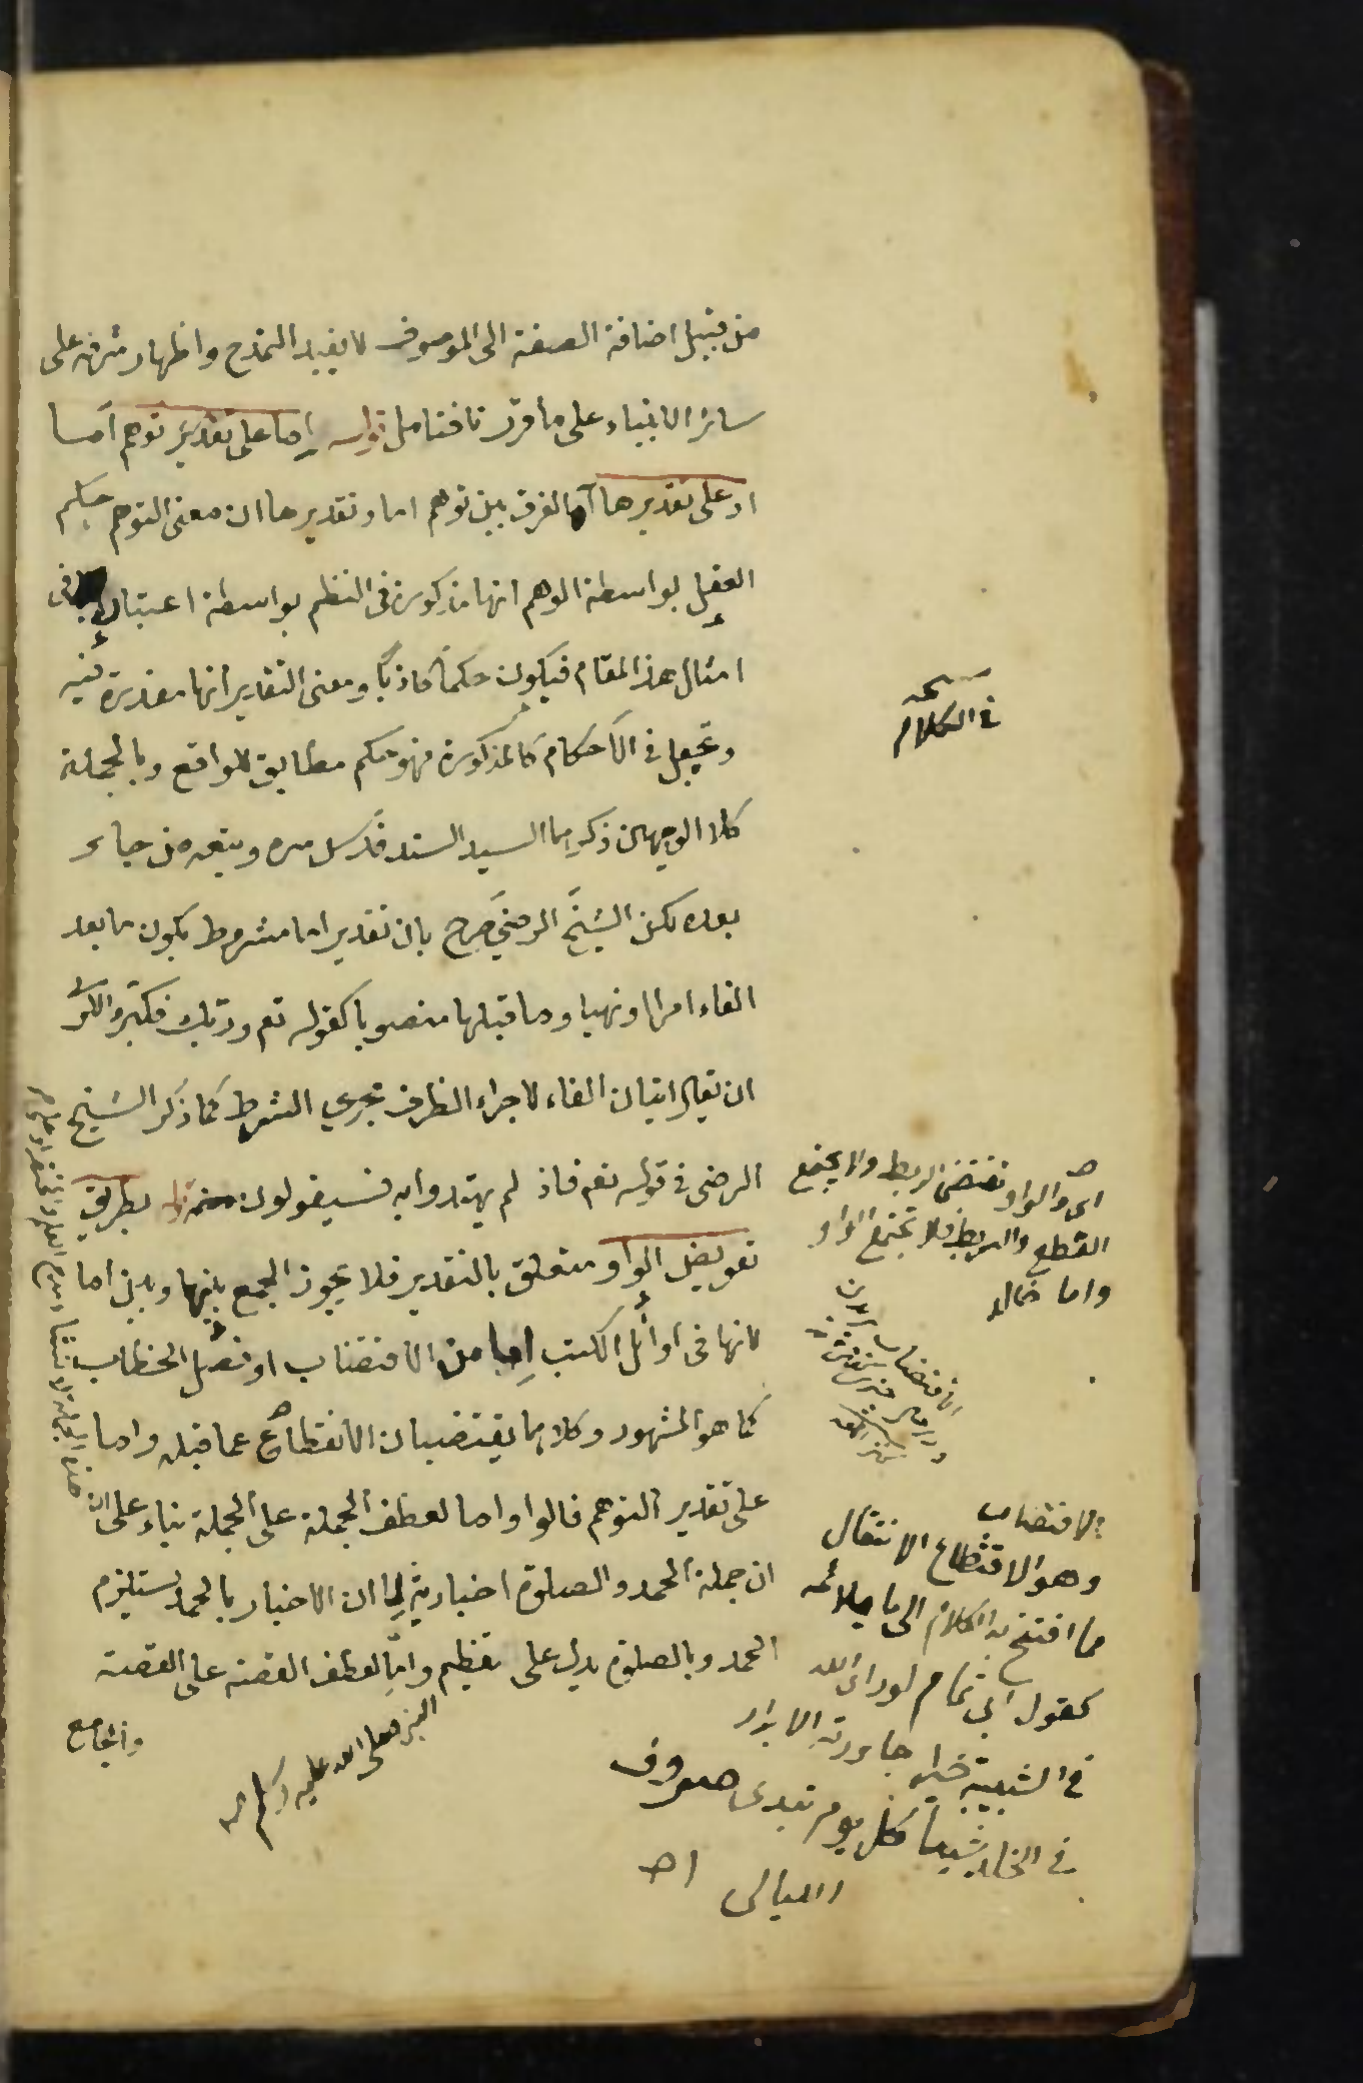 من قبيل اضافة الصفة الى الموصوف لا يفيد التمدح واظهار شرفه على
سائر الانبياء على ما قررنا فتامل قوله اما على تقدير توهم اما
او على تقديرها آه الفرق بين توهم اما وتقديرها ان معنى التوهم حكم
العقل بواسطة الوهم انها مذكورة فى النظم بواسطة اعتبار
امثال هذا المقام فيكون حكما كاذبا ومعنى التقدير انها مقدرة فيه
وتجعل فى الاحكام كالمذكورة فهو حكم مطابق للواقع وبالجملة
كلا الوجهين ذكرهما السيد السند قدس سره وتبعه من جاء
بعده لكن الشيخ الرضي صرح بان تقدير اما مشروط بكون ما بعد
الفاء امرا او نهيا وما قبلها منصوبا كقوله تع وربك فكبر
ان يقال اتيان الفاء لاجراء الظرف مجرى الشرط كما ذكر الشيخ
الرضى فى قوله تع فاذ لم يهتدوا به فسيقولون قوله بطريق
تعويض الواو متعلق بالتقدير فلا يجوز الجمع بينها وبين اما
لانها فى اوائل الكتب اما من الاقتضاب او فصل الخطاب
كما هو المشهور وكلاهما يقتضيان الانقطاع عما قبله واما
على تقدير التوهم فالواو اما لعطف الجملة على الجملة بناء على ان
ان جملة الحمد والصلوة اخبارية لما ان الاخبار بالحمد يستلزم
الحمد وبالصلوة يدل على تعظيم واما لعطف القصة على القصة
والجامع
صلى الله عليه وسلم
فى الكلام
اى والواو تقتضى الربط ولا يجتمع
القطع والربط فلا تجتمع الواو
واما
الاقتضاب
وهو الاقتطاع الانتقال
مما افتتح به الكلام الى ما يلائمه
كقول ابى تمام لو راى الله
فى الشيب خيرا جاورته الابرار
فى الخلد شيبا كل يوم تبدى صروف
الليالى اه